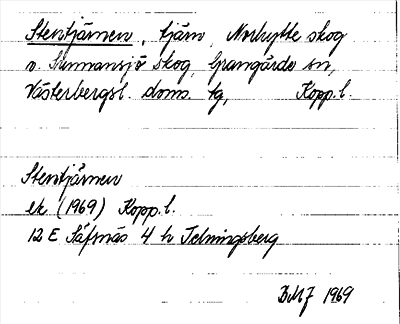 Stentjärnen, tjärn, Norhytte skog
o. Sunnansjö skog, Grangärde sn,
Västerbergsl. doms. tg, Kopp.l.
Stentjärnen
ek (1969) Kopp.l.
12 E Säfsnäs 4 h Telningsberg
BMJ 1969